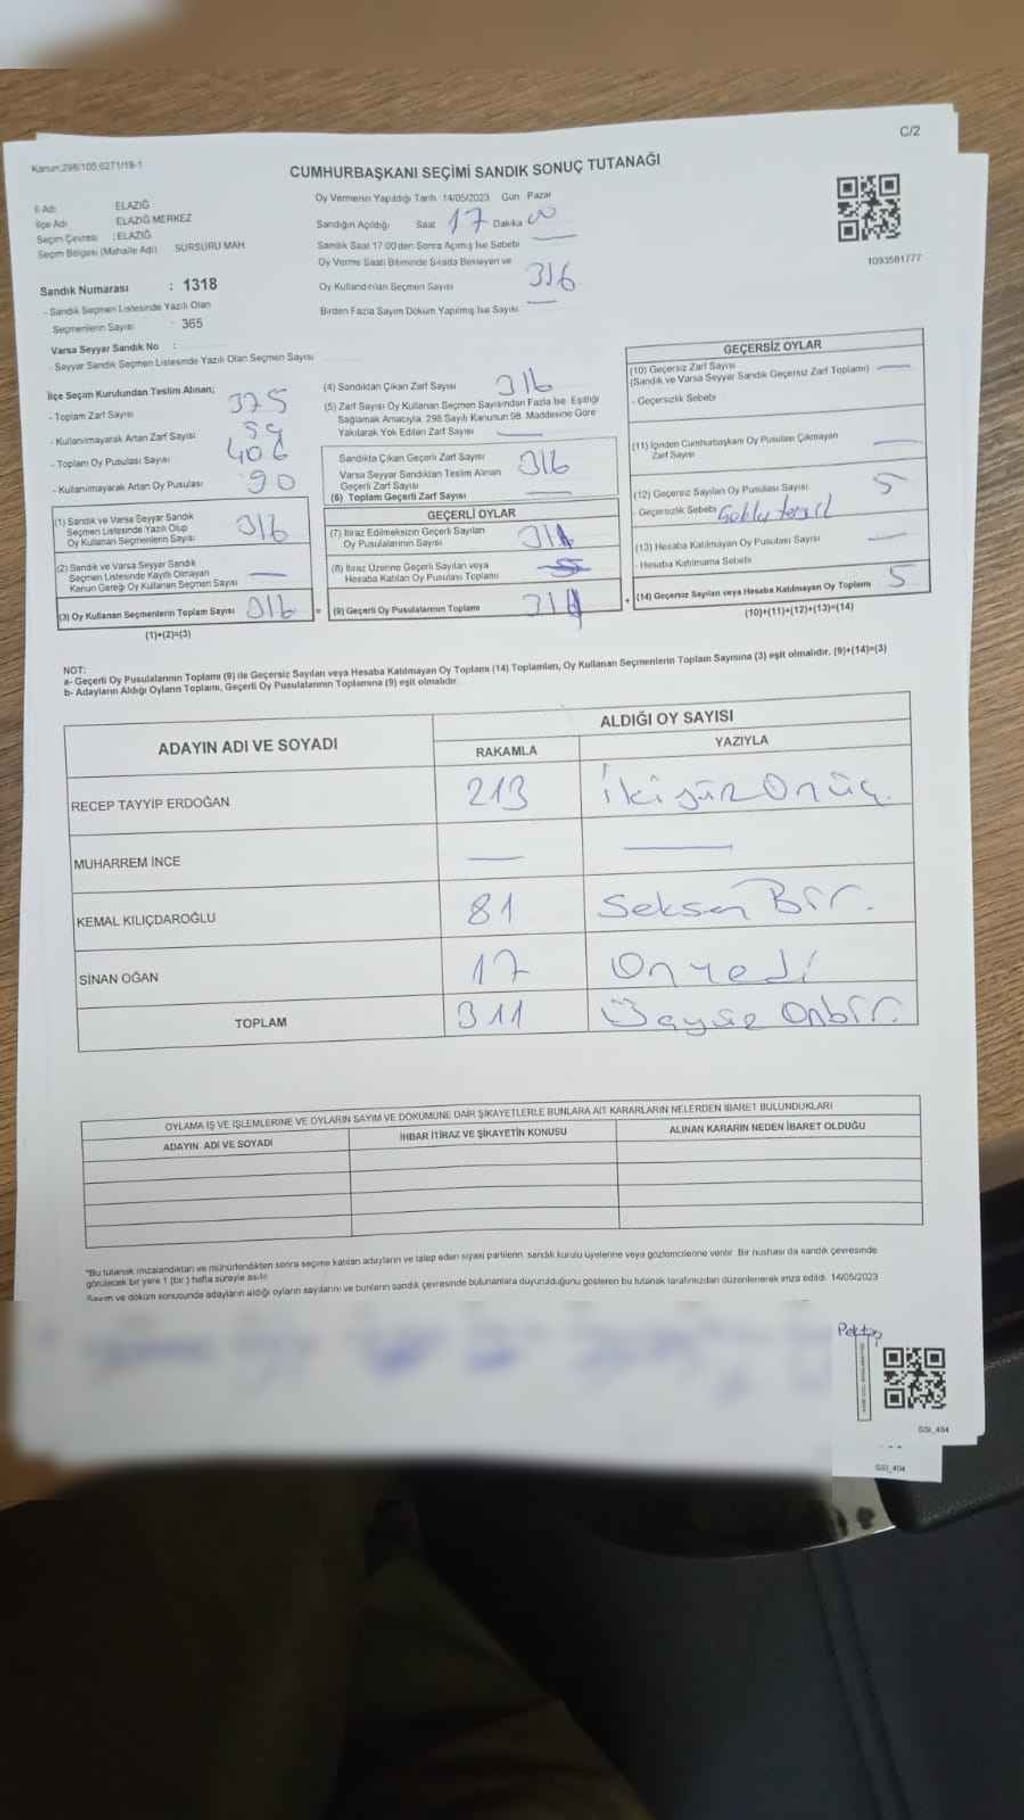 C/2
Kanun:298/105,6271/19-1
CUMHURBAŞKANI SEÇİMİ SANDIK SONUÇ TUTANAĞI
İl Adı ELAZIĞ
İlçe Adı ELAZIĞ MERKEZ
Seçim Çevresi : ELAZIĞ
Seçim Bölgesi (Mahalle Adı) SURSURU MAH
Sandık Numarası : 1318
- Sandık Seçmen Listesinde Yazılı Olan
Seçmenlerin Sayısı 365
Varsa Seyyar Sandık No :
- Seyyar Sandık Seçmen Listesinde Yazılı Olan Seçmen Sayısı
Oy Vermenin Yapıldığı Tarih 14/05/2023 Gün Pazar
Sandığın Açıldığı Saat 17 Dakika 00
Sandık Saat 17.00'den Sonra Açılmış İse Sebebi
Oy Verme Saati Bitiminde Sırada Bekleyen ve
Oy Kullandırılan Seçmen Sayısı 316
Birden Fazla Sayım Döküm Yapılmış İse Sayısı
1093581777
İlçe Seçim Kurulundan Teslim Alınan;
- Toplam Zarf Sayısı 375
- Kullanılmayarak Artan Zarf Sayısı 59
- Toplam Oy Pusulası Sayısı 406
- Kullanılmayarak Artan Oy Pusulası 90
(1) Sandık ve Varsa Seyyar Sandık
Seçmen Listesinde Yazılı Olup
Oy Kullanan Seçmenlerin Sayısı 316
(2) Sandık ve Varsa Seyyar Sandık
Seçmen Listesinde Kayıtlı Olmayan
Kanun Gereği Oy Kullanan Seçmen Sayısı
(3) Oy Kullanan Seçmenlerin Toplam Sayısı 316
(1)+(2)=(3)
(4) Sandıktan Çıkan Zarf Sayısı 316
(5) Zarf Sayısı Oy Kullanan Seçmen Sayısından Fazla İse Eşitliği
Sağlamak Amacıyla 298 Sayılı Kanunun 98. Maddesine Göre
Yakılarak Yok Edilen Zarf Sayısı
Sandıkta Çıkan Geçerli Zarf Sayısı 316
Varsa Seyyar Sandıktan Teslim Alınan
Geçerli Zarf Sayısı
(6) Toplam Geçerli Zarf Sayısı
GEÇERLİ OYLAR
(7) İtiraz Edilmeksizin Geçerli Sayılan
Oy Pusulalarının Sayısı 311
(8) İtiraz Üzerine Geçerli Sayılan veya
Hesaba Katılan Oy Pusulası Toplamı
= (9) Geçerli Oy Pusulalarının Toplamı 311
GEÇERSİZ OYLAR
(10) Geçersiz Zarf Sayısı
(Sandık ve Varsa Seyyar Sandık Geçersiz Zarf Toplamı)
- Geçersizlik Sebebi
(11) İçinden Cumhurbaşkanı Oy Pusulası Çıkmayan
Zarf Sayısı
(12) Geçersiz Sayılan Oy Pusulası Sayısı 5
- Geçersizlik Sebebi
(13) Hesaba Katılmayan Oy Pusulası Sayısı
- Hesaba Katılmama Sebebi
+ (14) Geçersiz Sayılan veya Hesaba Katılmayan Oy Toplamı 5
(10)+(11)+(12)+(13)=(14)
NOT:
a- Geçerli Oy Pusulalarının Toplamı (9) ile Geçersiz Sayılan veya Hesaba Katılmayan Oy Toplamı (14) Toplamları, Oy Kullanan Seçmenlerin Toplam Sayısına (3) eşit olmalıdır. (9)+(14)=(3)
b- Adayların Aldığı Oyların Toplamı, Geçerli Oy Pusulalarının Toplamına (9) eşit olmalıdır.
ADAYIN ADI VE SOYADI ALDIĞI OY SAYISI
RAKAMLA YAZIYLA
RECEP TAYYİP ERDOĞAN 213 İkiyüzonüç.
MUHARREM İNCE
KEMAL KILIÇDAROĞLU 81 Seksen Bir.
SİNAN OĞAN 17 Onyedi
TOPLAM 311 Üçyüz Onbir.
OYLAMA İŞ VE İŞLEMLERİNE VE OYLARIN SAYIM VE DÖKÜMÜNE DAİR ŞİKAYETLERLE BUNLARA AİT KARARLARIN NELERDEN İBARET BULUNDUKLARI
ADAYIN ADI VE SOYADI İHBAR İTİRAZ VE ŞİKAYETİN KONUSU ALINAN KARARIN NEDEN İBARET OLDUĞU
"Bu tutanak imzalandıktan ve mühürlendikten sonra seçime katılan adayların ve talep eden siyasi partilerin, sandık kurulu üyelerine veya gözlemcilerine verilir. Bir nüshası da sandık çevresinde
görülecek bir yere 1 (bir) hafta süreyle asılır.
Sayım ve döküm sonucunda adayların aldığı oyların sayılarını ve bunların sandık çevresinde bulunanlara duyurulduğunu gösteren bu tutanak tarafımızdan düzenlenerek imza edildi. 14/05/2023